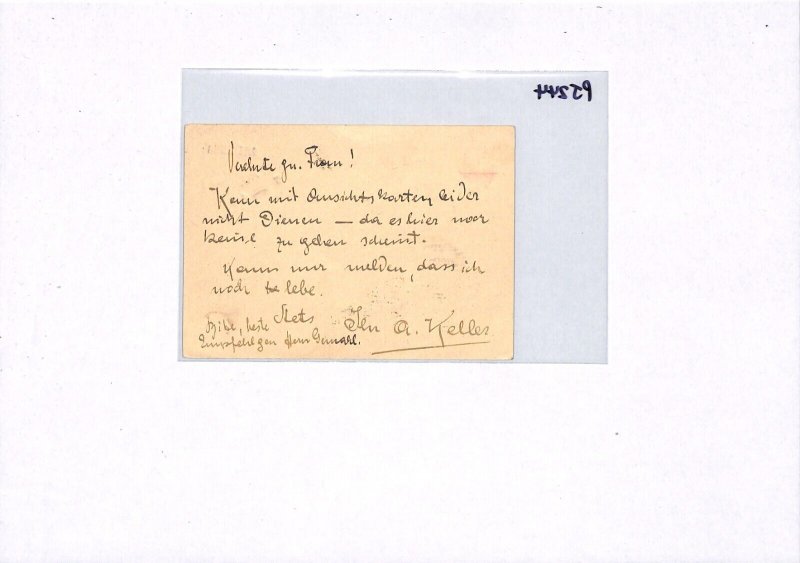 PJ244
Verehrte gn. Frau!
Kann mit Ansichtskarten leider
nicht Dienen – da es hier noch
keine zu geben scheint.
Kann nur melden, dass ich
noch lebe.
Stets Ihr A. Keller
Bitte, beste
Empfehlgen Herrn Gemahl.